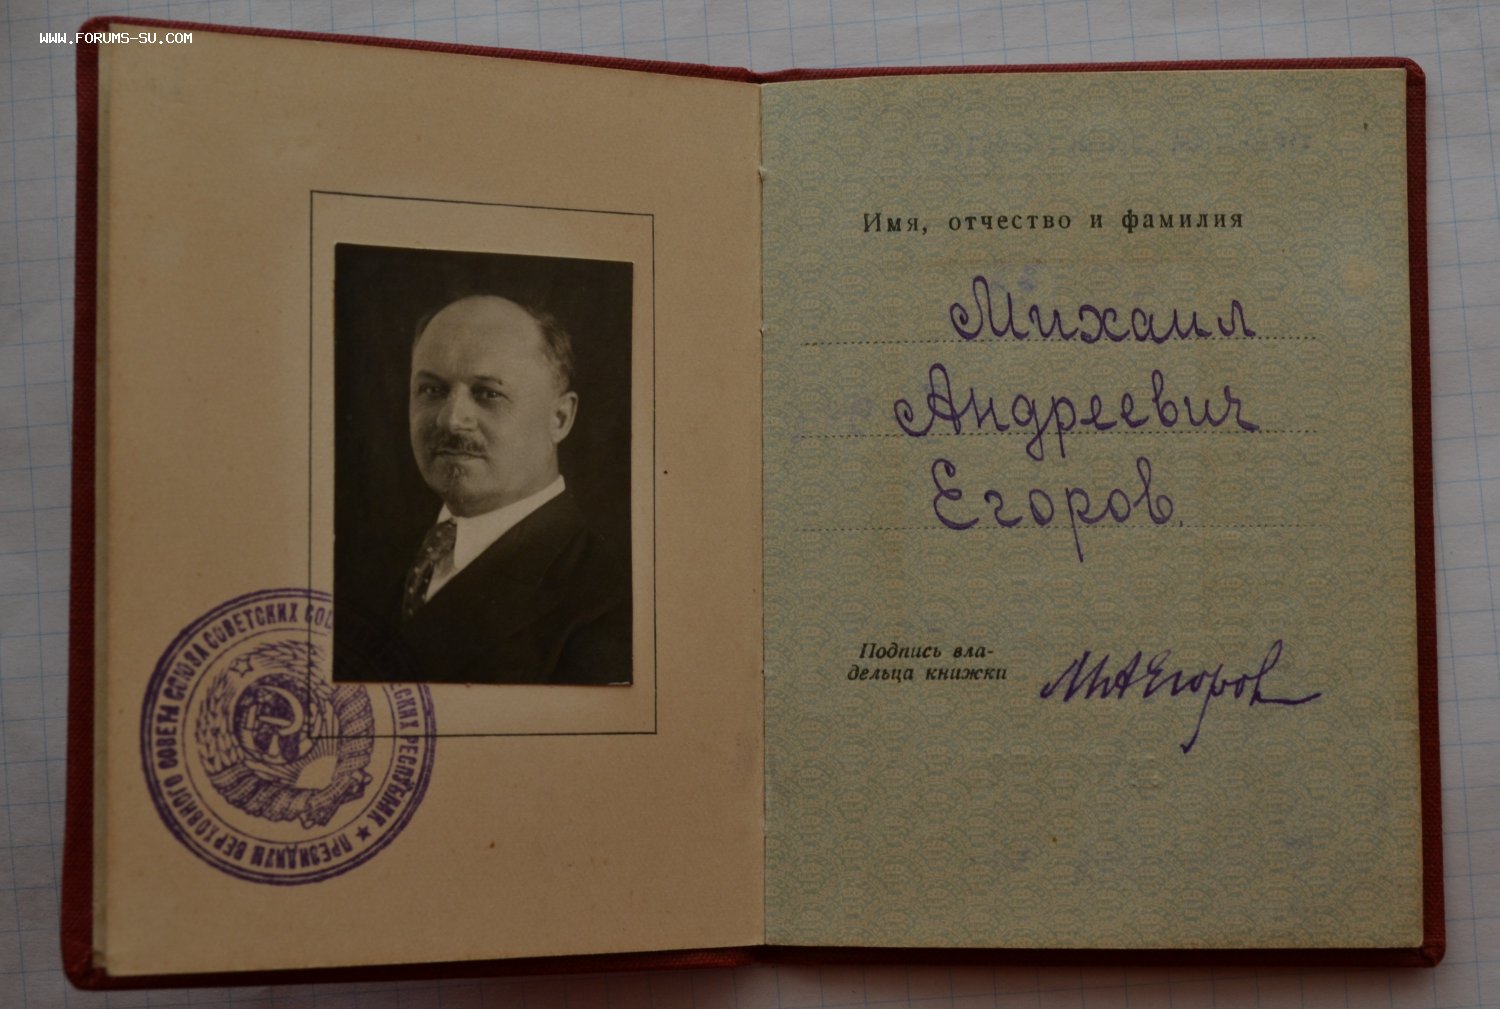 WWW.FORUMS-SU.COM
ПРЕЗИДИУМ ВЕРХОВНОГО СОВЕТА СОЮЗА СОВЕТСКИХ РЕСПУБЛИК
Имя, отчество и фамилия
Михаил
Андреевич
Егоров.
Подпись вла-
дельца книжки
МАЕгоров